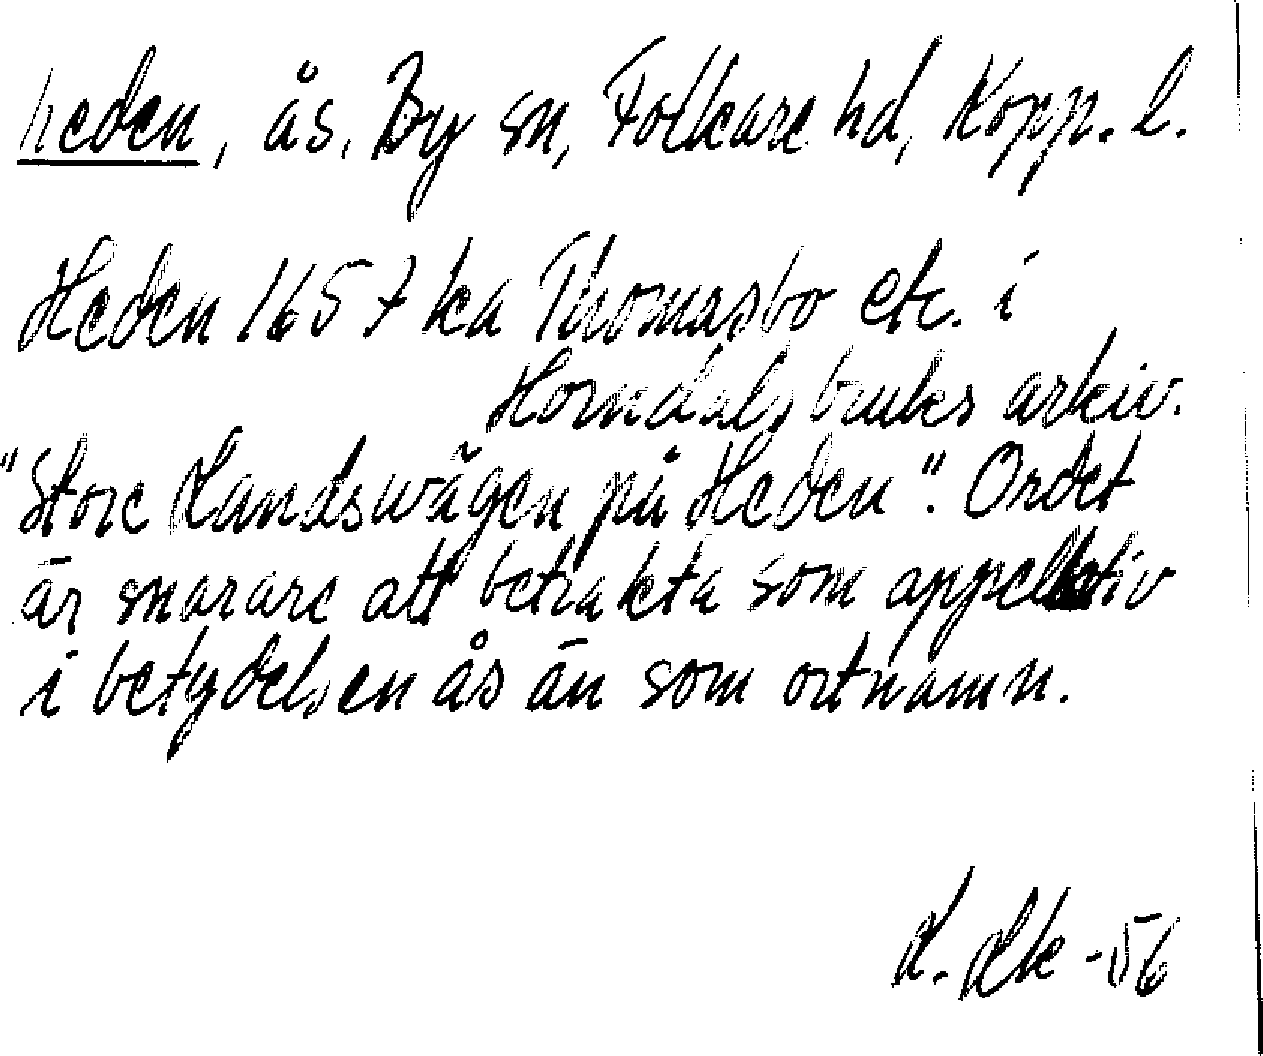 heden, ås, By sn, Folkare hd, Kopp. l.
Heden 1657 ka Thomasbo etc. i
Horndals bruks arkiv.
"Store Landswägen på Heden". Ordet
är snarare att betrakta som appellativ
i betydelsen ås än som ortnamn.
-56